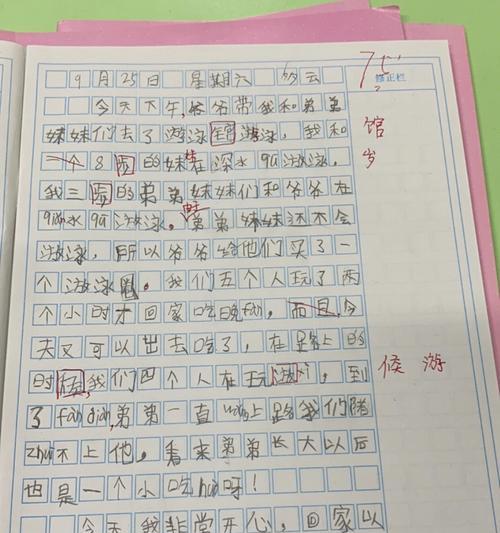 9月25日 星期六 多云 75 修正栏
今天下午,爷爷带我和弟弟
妹妹们去了游泳馆游泳,我和 馆
一个8岁的妹妹在深水qū游泳, 岁
我三岁的弟弟妹妹们和爷爷在
qiǎn水qū游泳。弟弟妹妹还不会
游泳,所以爷爷给他们买了一
个游泳圈。我们五个人玩了两
个小时才回家吃晚fàn,而且今
天又可以出去吃了,在路上的
时候,我们四个人在玩游 候 游
,到
了fàn diàn,弟弟一直 上 我们
zhuī不上他。看来弟弟长大以后
也是一个小吃huò呀!
今天我非常开心,回家以